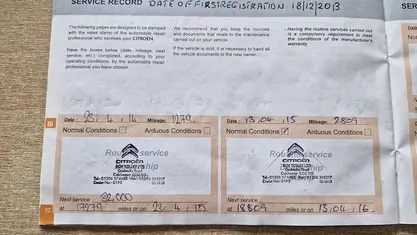 SERVICE RECORD DATE OF FIRST REGISTRATION 18/12/2013
SER
The following pages are designed to be stamped with the sales stamp of the automobile repair professional who services your CITROËN.
Have the boxes below (date, mileage, next service, etc.) completed, according to your operating conditions, by the automobile repair professional you have chosen.
We recommend that you keep the invoices and documents that relate to the maintenance carried out on your vehicle.
If the vehicle is sold, it is necessary to hand all the vehicle documents to the new owner.
Having the routine services carried out is a compulsory requirement to meet the conditions of the manufacturer's warranty.
Date: 4 . 14 Mileage: 1279
Normal Conditions Arduous Conditions
Routine service
CITROËN
Colchester CO3
Next service
at miles or on 23/ 4 / 15
Date: 13,04,15 Mileage: 2809
Normal Conditions ✓ Arduous Conditions
service
CITROËN
Next service
at 18809 miles or on 13/04/16